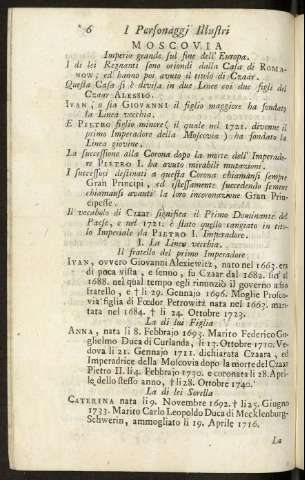 6 I Pursonaggj Illustri
MOSCOVIA
Imperio grande sul fine dell' Europa.
I di lei Regnanti sono oriondi dalla Casa di ROMA-
NOW; ed hanno poi avuto il titolo di CZAAR.
Questa Casa si è divisa in due Linee coi due figli del
CZAAR ALESSIO.
IVAN, o sia GIOVANNI il figlio maggiore ha fondato
la Linea vecchia.
E PIETRO figlio minore (il quale nel 1721. devenne il
primo Imperadore della Moscovia) ha fondato la
Linea giovine.
La successione alla Corona dopo la morte dell' Imperado-
re PIETRO I. ha avuto mirabili mutazioni.
I successori destinati a questa Corona chiamansi sempre
Gran Principi, ed istessamente succedendo femine
chiamansi avante la loro incoronazione Gran Prin-
cipesse.
Il vocabulo di CZAAR significa il Primo Dominante del
Paese, e nel 1721. è stato quello cangiato in tito-
lo Imperiale da PIETRO I. Imperadore.
I. La Linea vecchia.
Il fratello del primo Imperadore.
IVAN, ovvero Giovanni Alexiewitz, nato nel 1663. era
di poca vista, e senno, fu Czaar dal 1682. sin' al
1688. nel qual tempo egli rinunziò il governo a suo
fratello, e † li 29. Gennajo 1696. Moglie Prosco-
via figlia di Fœdor Petrowitz nata nel 1667. mari-
tata nel 1684. † li 24. Ottobre 1723.
La di lui Figlia
ANNA, nata li 8. Febbrajo 1693. Marito Federico Gu-
glielmo Duca di Curlanda, li 13. Ottobre 1710. Ve-
dova li 21. Gennajo 1711. dichiarata Czaara, ed
Imperadrice della Moscovia dopo la morte del Czaar
Pietro II. li 4. Febbrajo 1730. e coronata li 28. Apri-
le dello stesso anno, † li 28. Ottobre 1740.
La di lei Sorella
CATERINA nata li 9. Novembre 1692. † li 25. Giugno
1733. Marito Carlo Leopoldo Duca di Mecklenburg-
Schwerin, ammogliato li 19. Aprile 1716.
La